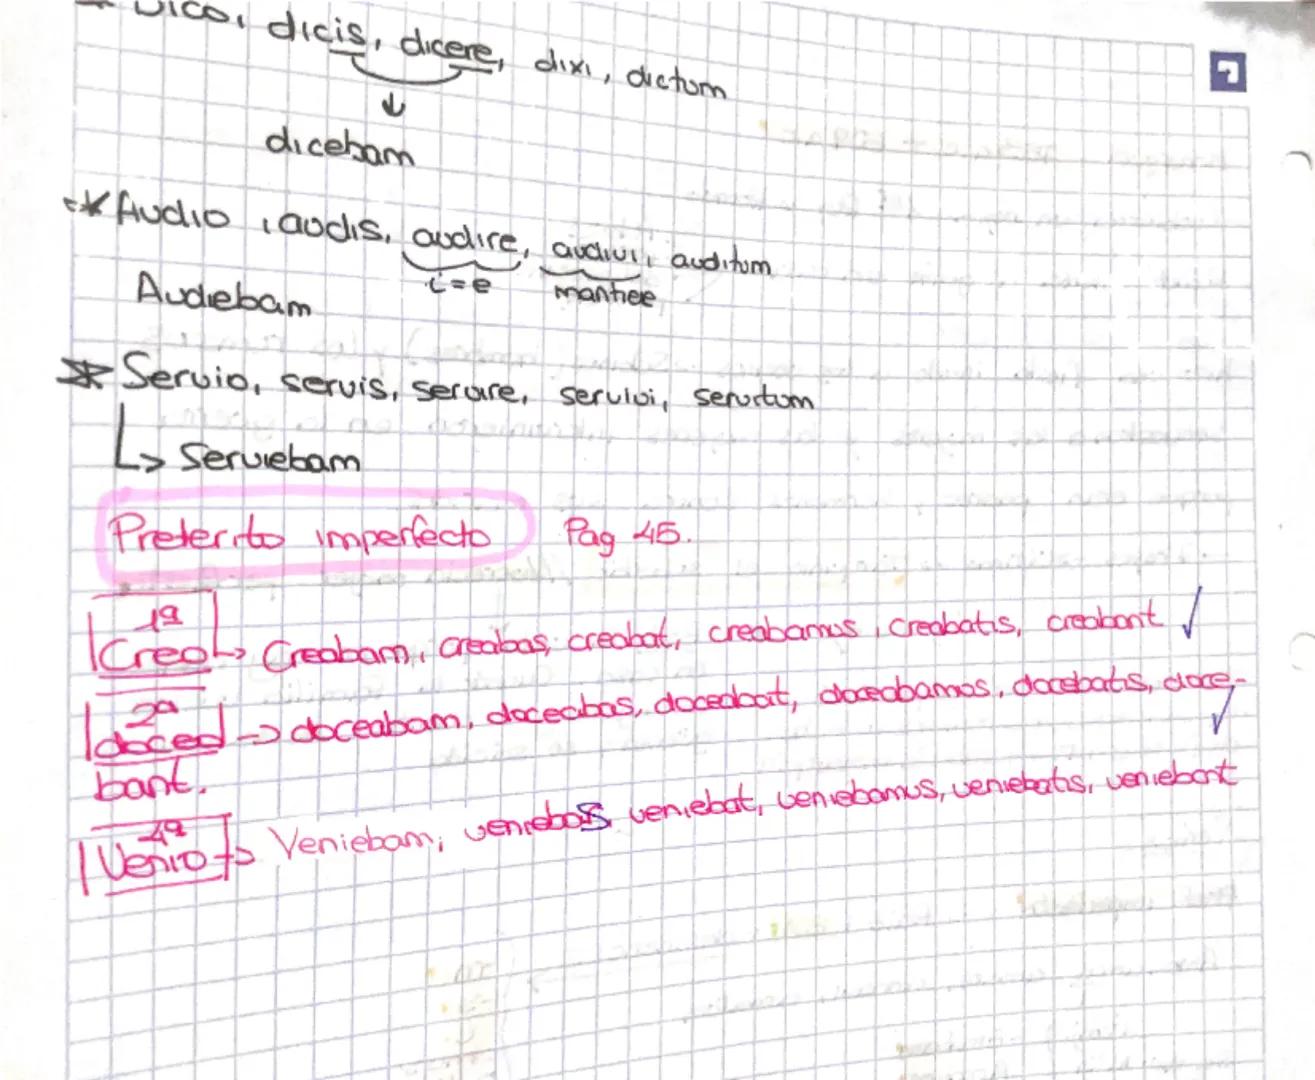 Dico, dicis, dicere, dixi, dictum
↓
dicebam
* Audio, audis, audire, audivi, auditum
i=e mantiee
Audiebam
* Servio, servis, servire, servivi, servitum
↳ Serviebam
Preterito imperfecto Pag 45.
1ª
Creo → Creabam, creabas, creabat, creabamus, creabatis, creabant ✓
2ª
doceo → doceabam, doceabas, doceabat, doceabamos, docebatis, doce-
bant. ✓
4ª
Venio → Veniebam, veniebas veniebat, veniebamus, veniebatis, veniebant